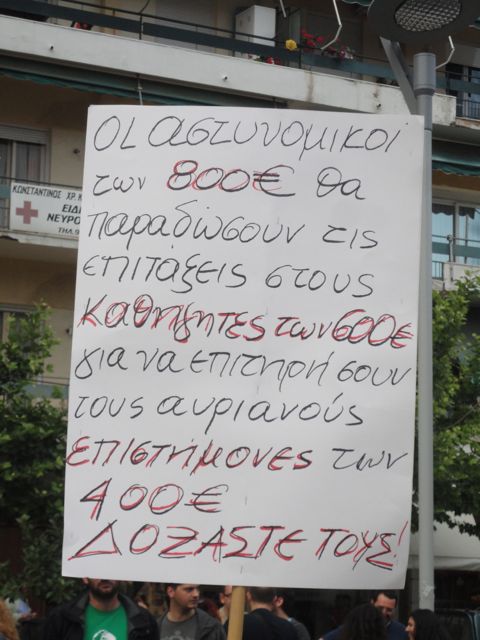 ΟΙ αστυνομικοί
των 800€ θα
παραδώσουν τις
επιτάξεις στους
καθηγητές των 600€
για να επιτηρήσουν
τους αυριανούς
επιστήμονες των
400€
ΔΟΞΑΣΤΕ ΤΟΥΣ!
ΚΩΝΣΤΑΝΤΙΝΟΣ ΧΡ.
ΕΙΔΙ
ΝΕΥΡΟ
ΤΗΛ.